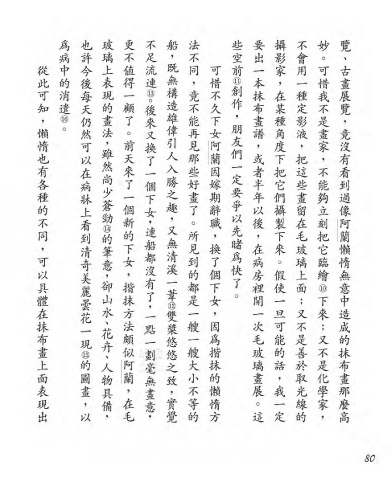 覽、古畫展覽，竟沒有看到過像阿蘭懶惰無意中造成的抹布畫那麼高
妙。可惜我不是畫家，不能夠立刻把它臨繪⑩下來；又不是化學家，
不會用一種定影液，把這些畫留在毛玻璃上面；又不是善於取光線的
攝影家，在某種角度下把它們攝製下來。假使一旦可能的話，我一定
要出一本抹布畫譜，或者半年以後，在病房裡開一次毛玻璃畫展。這
些空前⑪創作，朋友們一定要爭以先睹為快了。
可惜不久下女阿蘭因嫁期辭職，換了個下女，因為揩抹的懶惰方
法不同，竟不能再見那些好畫了。所見到的都是一艘一艘大小不等的
船，既無構造雄偉引人入勝之趣，又無清溪一葦⑫雙槳悠悠之致，實覺
不足流連⑬。後來又換了一個下女，連船都沒有了，一點一劃毫無畫意，
更不值得一顧了。前天來了一個新的下女，揩抹方法頗似阿蘭，在毛
玻璃上表現的畫法，雖然尚少蒼勁⑭的筆意，卻山水、花卉、人物具備，
也許今後每天仍然可以在病牀上看到清奇美麗曇花一現⑮的圖畫，以
為病中的消遣⑯。
從此可知，懶惰也有各種的不同，可以具體在抹布畫上面表現出
80